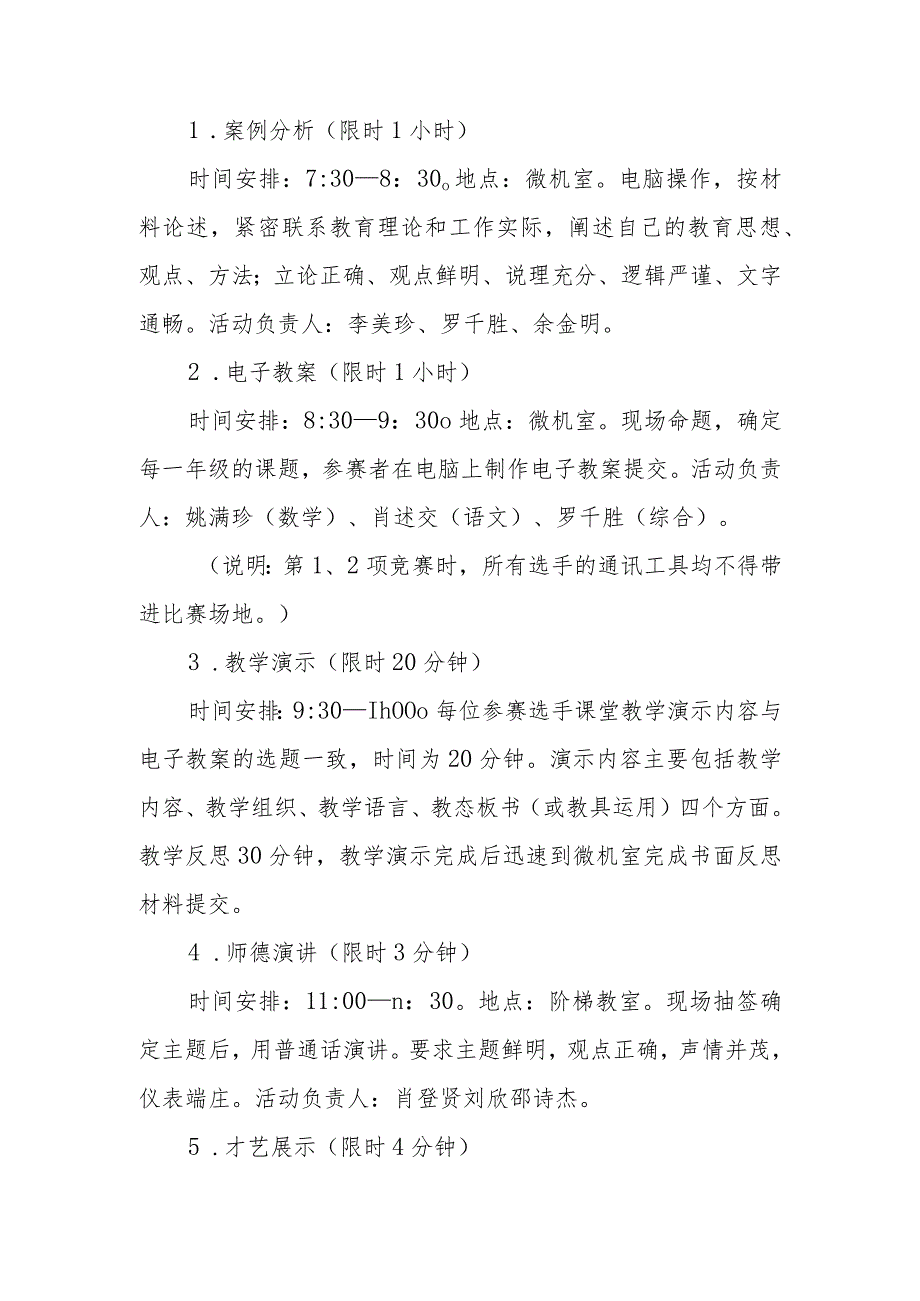 1 .案例分析（限时1小时）
时间安排：7:30—8：30o地点：微机室。电脑操作，按材
料论述，紧密联系教育理论和工作实际，阐述自己的教育思想、
观点、方法；立论正确、观点鲜明、说理充分、逻辑严谨、文字
通畅。活动负责人：李美珍、罗千胜、余金明。
2 .电子教案（限时1小时）
时间安排：8:30—9：30o地点：微机室。现场命题，确定
每一年级的课题，参赛者在电脑上制作电子教案提交。活动负责
人：姚满珍（数学）、肖述交（语文）、罗千胜（综合）。
（说明：第1、2项竞赛时，所有选手的通讯工具均不得带
进比赛场地。）
3 .教学演示（限时20分钟）
时间安排：9:30—IhOOo每位参赛选手课堂教学演示内容与
电子教案的选题一致，时间为20分钟。演示内容主要包括教学
内容、教学组织、教学语言、教态板书（或教具运用）四个方面。
教学反思30分钟，教学演示完成后迅速到微机室完成书面反思
材料提交。
4 .师德演讲（限时3分钟）
时间安排：11:00—n：30。地点：阶梯教室。现场抽签确
定主题后，用普通话演讲。要求主题鲜明，观点正确，声情并茂，
仪表端庄。活动负责人：肖登贤刘欣邵诗杰。
5 .才艺展示（限时4分钟）